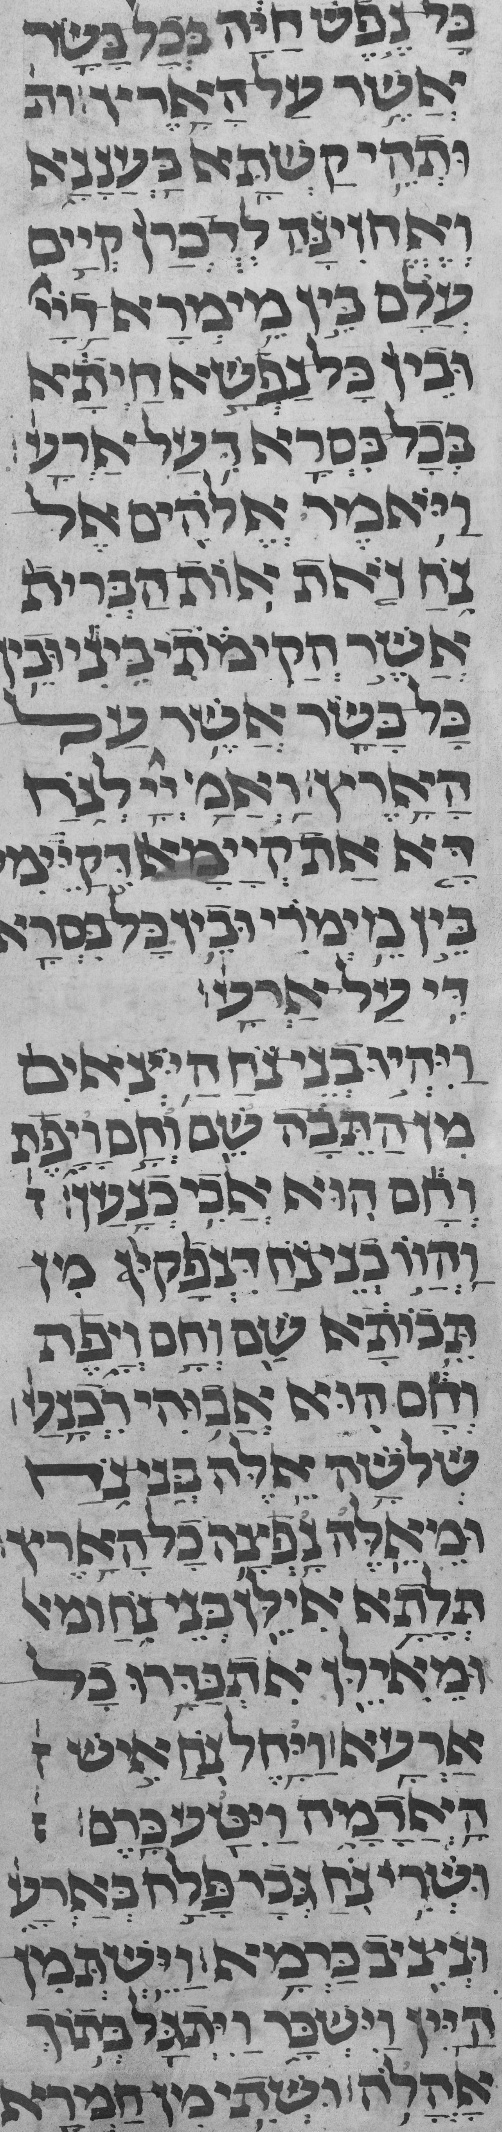 כָּל נֶפֶשׁ חַיָּה בְּכָל בָּשָׂר
אֲשֶׁר עַל הָאָרֶץ׃ ות
וּתְהֵי קַשְׁתָּא בַּעֲנָנָא
וְאֶחְזִינַּהּ לְדִכְרַן קְיָים
עָלַם בֵּין מֵימְרָא דַיְיָ
וּבֵין כָּל נַפְשָׁא חַיְתָא
בְּכָל בִּסְרָא דְּעַל אַרְעָ׃
וַיֹּאמֶר אֱלֹהִים אֶל
נֹחַ זֹאת אוֹת הַבְּרִית
אֲשֶׁר הֲקִימֹתִי בֵּינִי וּבֵין
כָּל בָּשָׂר אֲשֶׁר עַל
הָאָרֶץ׃ וַאֲמַ יְיָ לְנֹחַ
דָּא אָת קְיָימָא דְּקַיֵּימִ
בֵּין מֵימְרִי וּבֵין כָּל בִּסְרָא
דִּי עַל אַרְעָ׃
וַיִּהְיוּ בְנֵי נֹחַ הַיֹּצְאִים
מִן הַתֵּבָה שֵׁם וְחָם וָיָפֶת
וְחָם הוּא אֲבִי כְנָעַן׃ ד
וַהֲווֹ בְנֵי נֹחַ דִּנְפַקוּ מִן
תֵּבוֹתָא שֵׁם וְחָם וְיָפֶת
וְחָם הוּא אֲבוּהִי דִכְנָעַ׃
שְׁלֹשָׁה אֵלֶּה בְּנֵי נֹחַ
וּמֵאֵלֶּה נָפְצָה כָל הָאָרֶץ׃
תְּלָתָא אִילֵּן בְּנֵי נֹחַ ומא
וּמֵאִילֵּן אִתְבַּדַּרוּ כָּל
אַרְעָא׃ וַיָּחֶל נֹחַ אִישׁ ד
הָאֲדָמָה וַיִּטַּע כָּרֶם׃
וְשָׁרִי נֹחַ גְּבַר פָּלַח בְּאַרְעָ
וּנְצִיב כַּרְמָא׃ וַיֵּשְׁתְּ מִן
הַיַּיִן וַיִּשְׁכָּר וַיִּתְגַּל בְּתוֹךְ
אָהֳלֹה׃ וּשְׁתִי מִן חַמְרָא